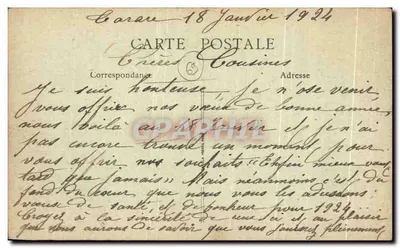 Tarare 18 Janvier 1924
CARTE POSTALE
Chères Cousines
Correspondance Adresse
Je suis honteuse je n'ose venir
vous offrir nos vœux de bonne année
nous voilà au 18 Janvier et je n'ai
pas encore trouvé un moment pour
vous offrir nos souhaits "Enfin mieux vaut
tard que jamais" Mais néanmoins c'est du
fond du cœur que nous vous les adressons:
vœux de santé, et de bonheur pour 1924.
Croyez à la sincérité de ceux ci et au plaisir
que nous aurons de savoir que vous jouissez pleinement